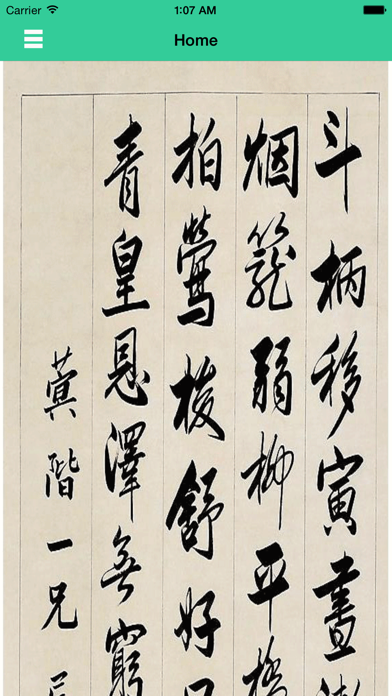 Carrier 1:07 AM
Home
斗柄移寅晝
烟籠弱柳平
拍鶯梭舒好
青皇恩澤無窮
蓂階一兄